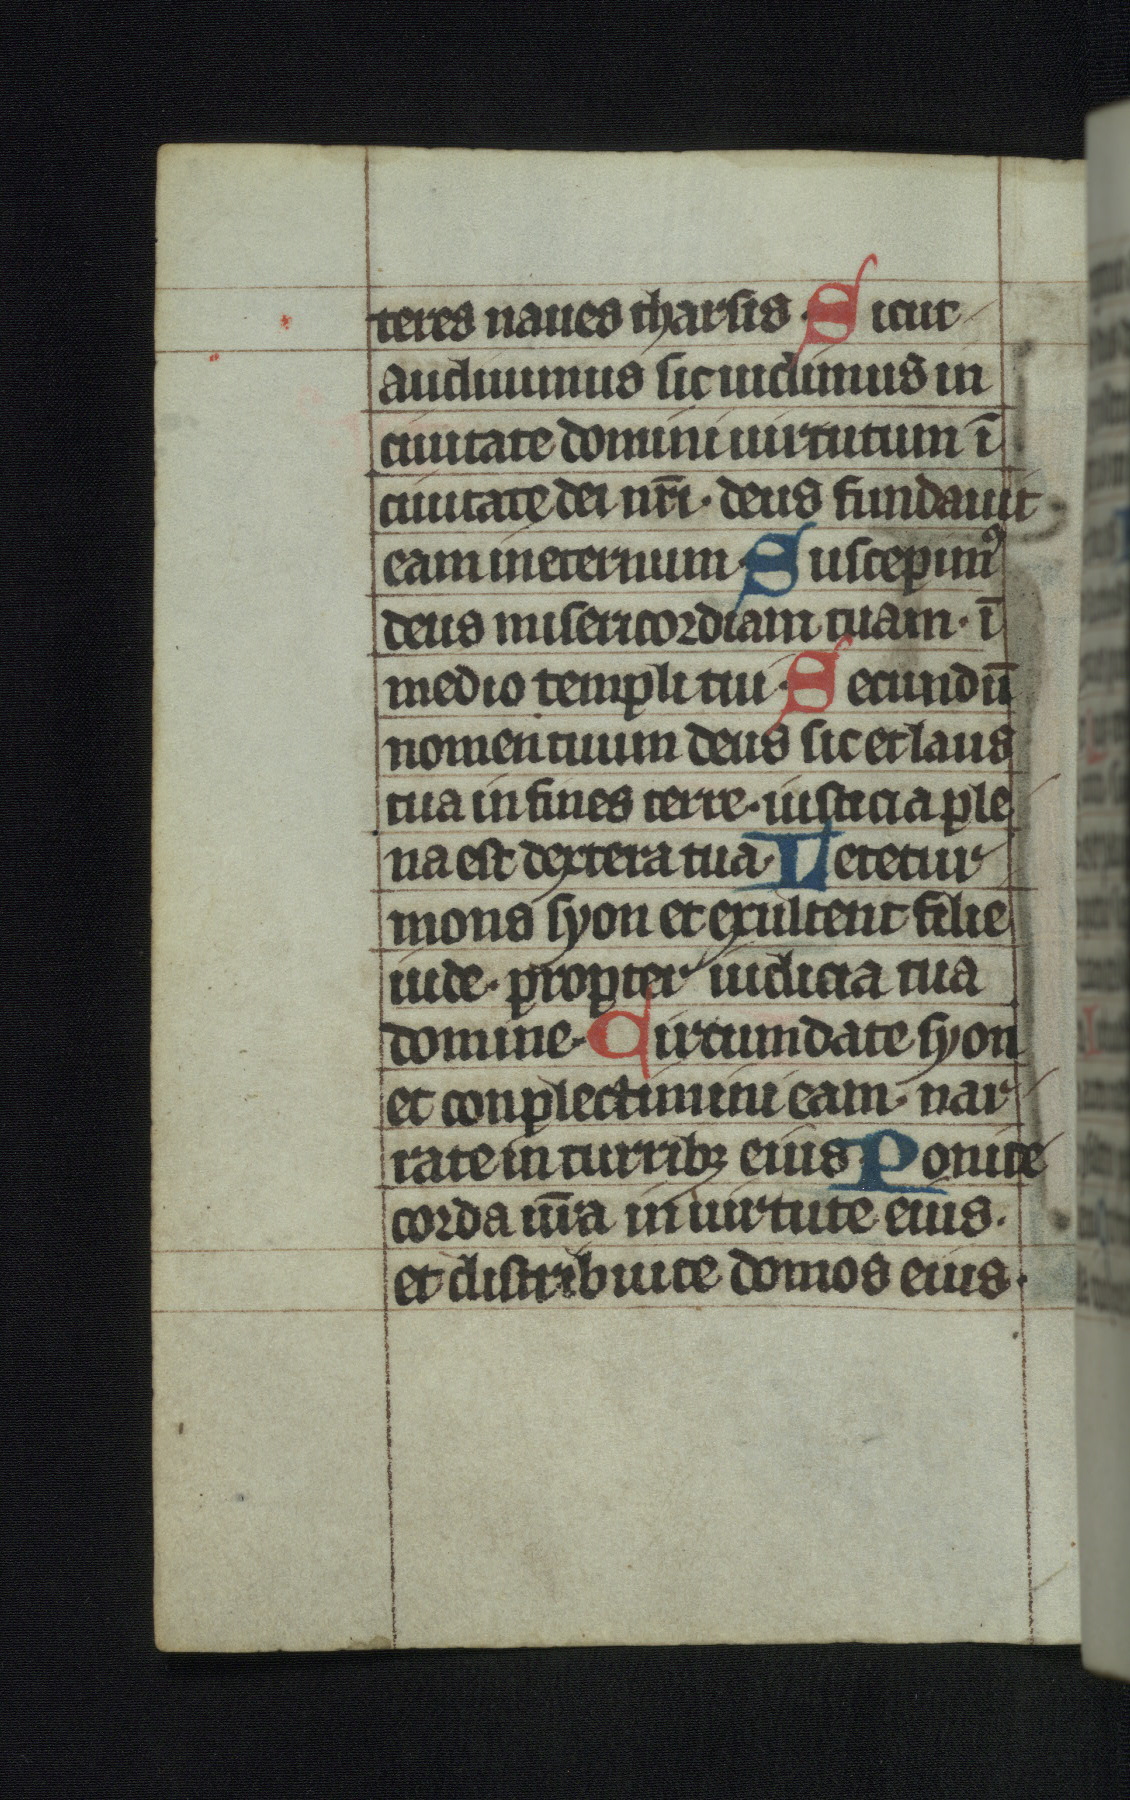 teres naues tharsis · Sicut
audiuimus sic uidimus in
ciuitate domini uirtutum ī
ciuitate dei nr̄i · deus fundauit
eam in eternum · Suscepimꝰ
deus misericordiam tuam · ī
medio templi tui · Secundū
nomen tuum deus sic et laus
tua in fines terre · iusticia ple
na est dextera tua · Letetur
mons syon et exultent filie
iude · propter iudicia tua
domine · Circumdate syon
et conplectimini eam · nar
rate in turribꝫ eius Ponite
corda ur̄a in uirtute eius ·
et distribuite domos eius ·